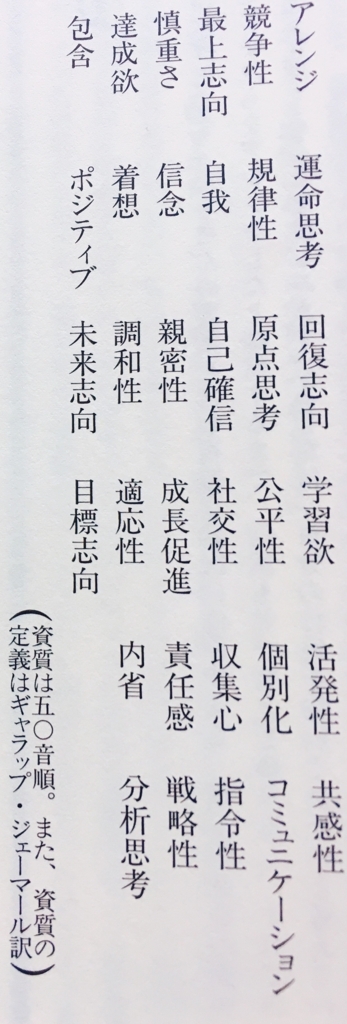 アレンジ　運命思考　回復志向　学習欲　活発性　共感性
競争性　規律性　原点思考　公平性　個別化　コミュニケーション
最上志向　自我　自己確信　社交性　収集心　指令性
慎重さ　信念　親密性　成長促進　責任感　戦略性
達成欲　着想　調和性　適応性　内省　分析思考
包含　ポジティブ　未来志向　目標志向
（資質は五〇音順。また、資質の
定義はギャラップ・ジェーマール訳）